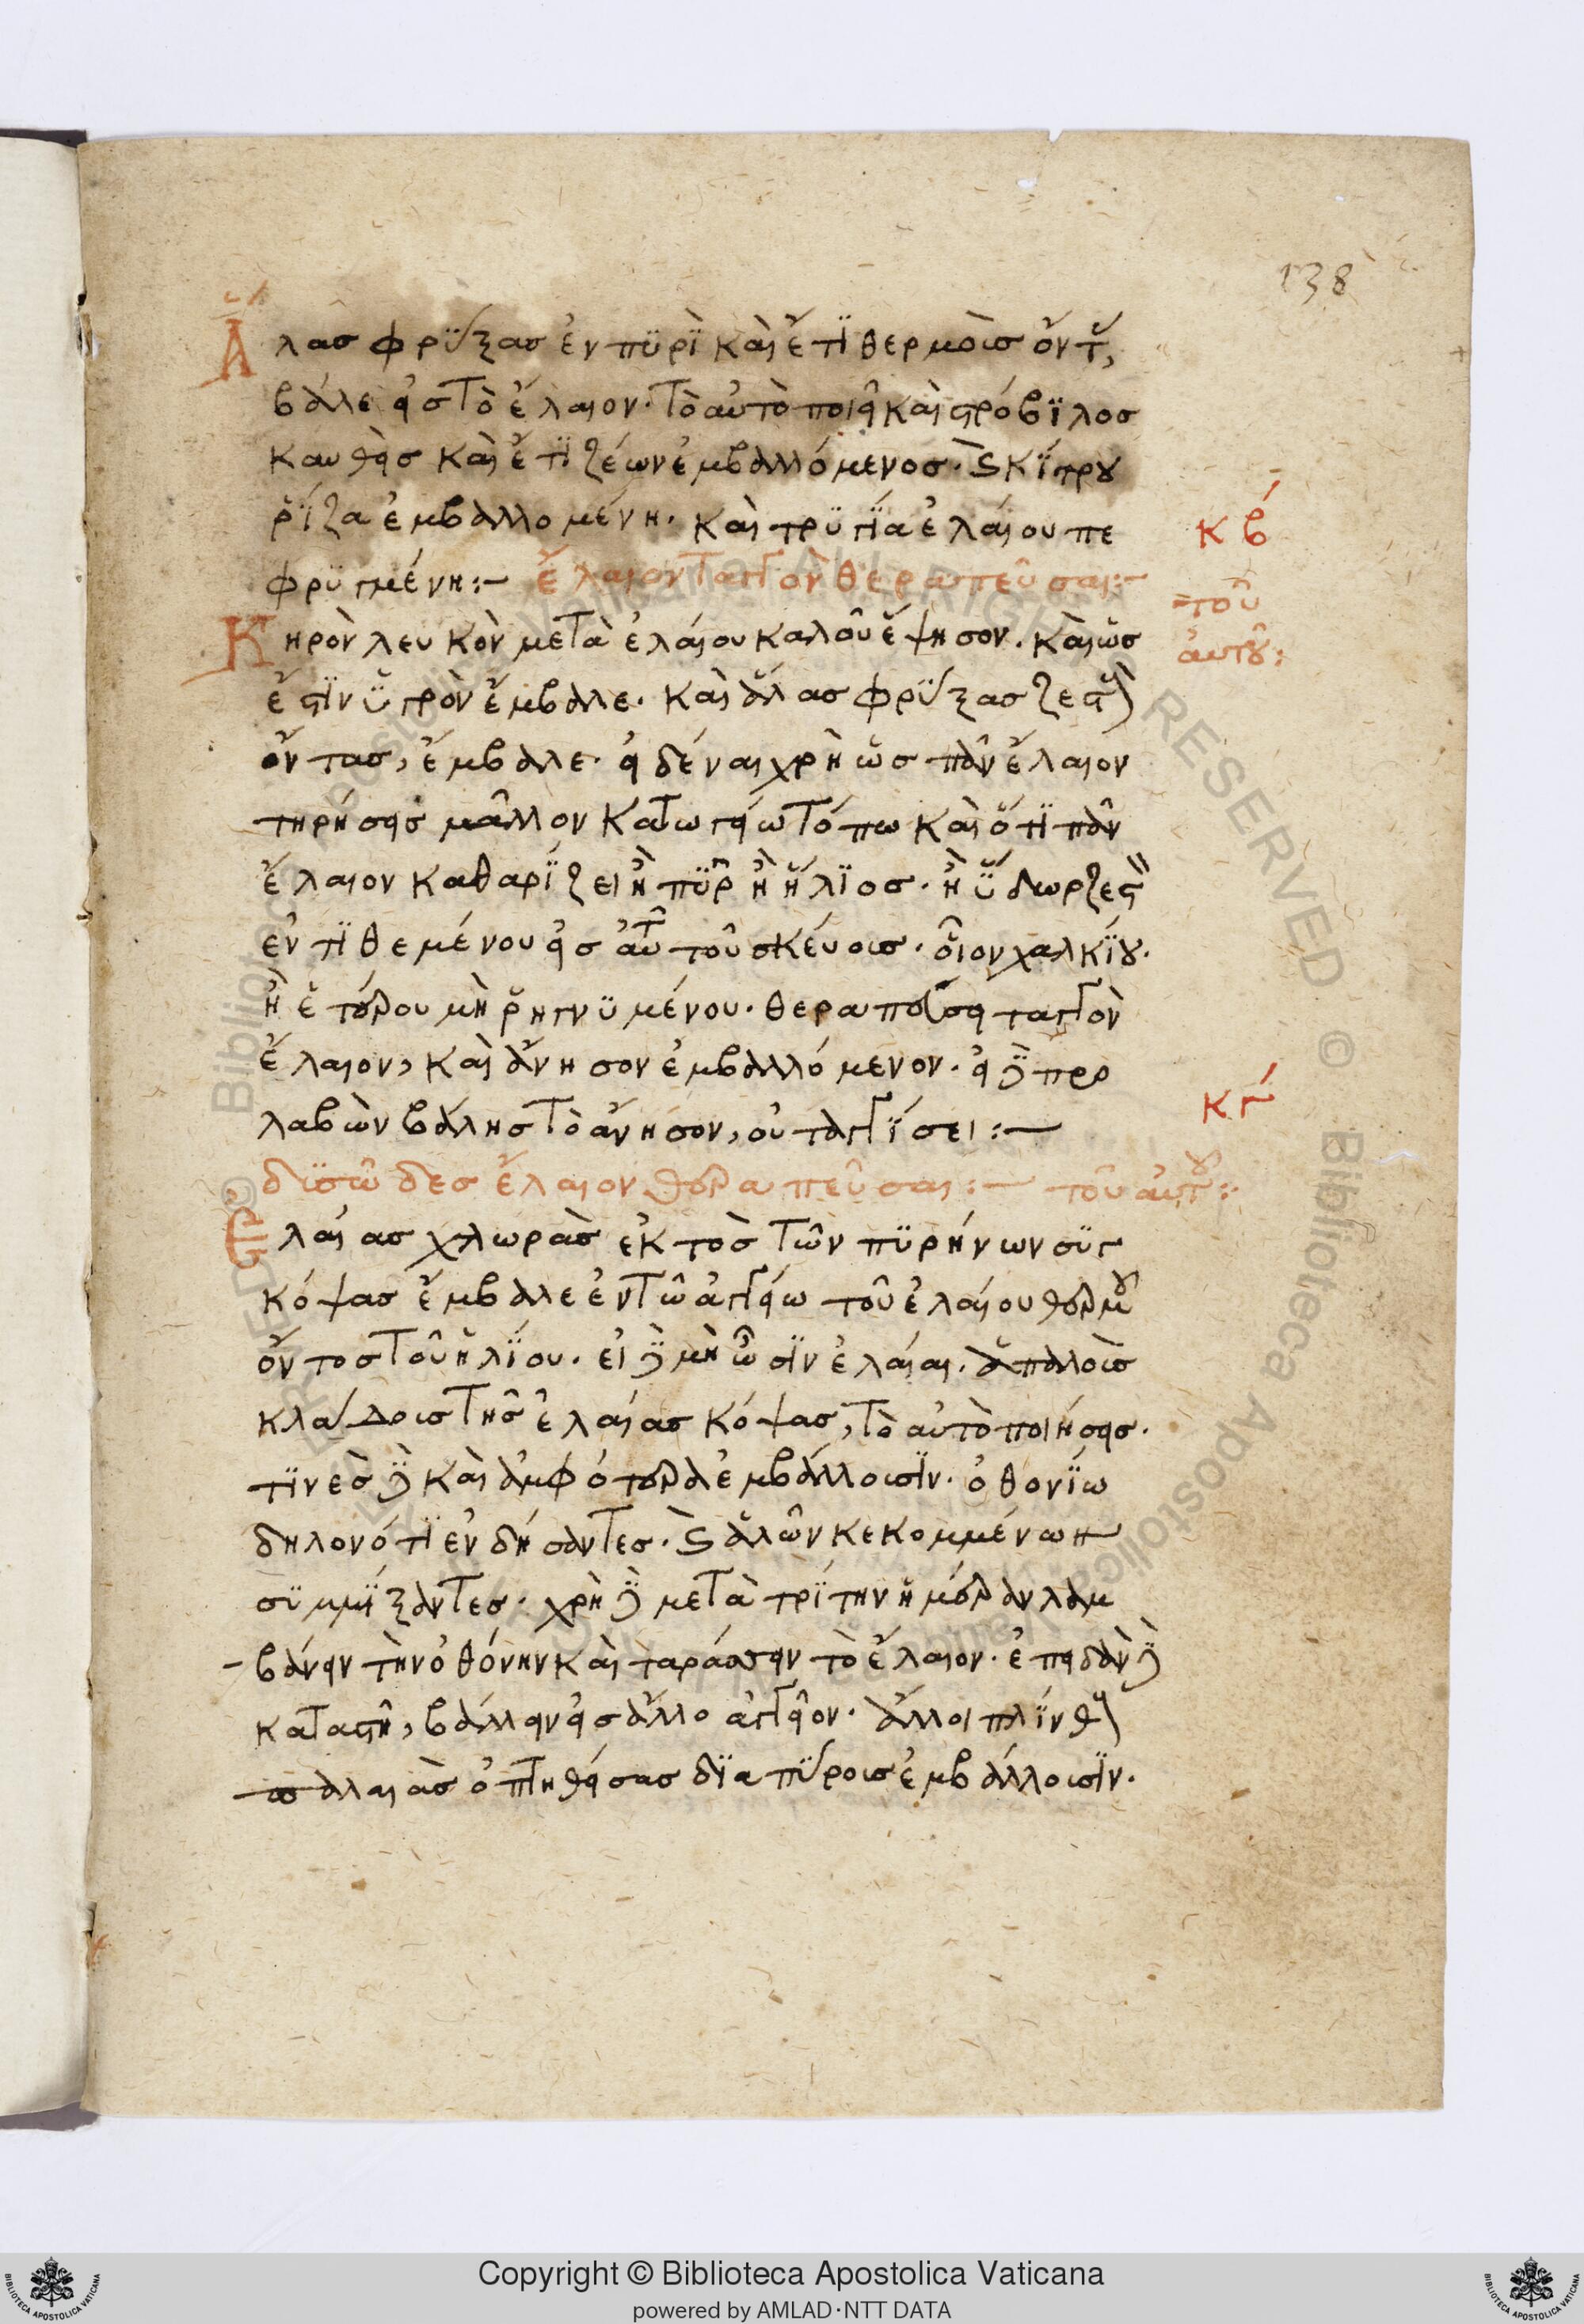 138
Ἅλας φρΰξας ἐν πϋρῒ καὶ ἔτϊ θερμοῖς ὄντ,
βάλε εἰς τὸ ἔλαιον. τὸ αὐτὸ ποιεῖ καὶ στρόβϊλος
καυθεὶς καὶ ἔτϊ ζέων ἐμβαλλόμενος. καὶ κΐτρου
ῥΐζα ἐμβαλλομένη. καὶ τρϋγΐα ἐλαίου πε
φρϋγμένη :— ἔλαιον ταγγὸν θεραπεῦσαι :—
κβ
τοῦ
αὐτοῦ :
Κηρὸν λευκὸν μετὰ ἐλαίου καλοῦ ἕψησον. καὶ ὡς
ἔστϊν ὑγρὸν ἔμβαλε. καὶ ἅλας φρΰξας ζεστ
ὄντας, ἔμβαλε. εἰδέναι χρὴ ὡς πᾶν ἔλαιον
τηρήσεις μᾶλλον κατωγείω τόπω καὶ ὅτϊ πᾶν
ἔλαιον καθαρΐζει ἢ πῦρ ἢ ἥλϊος. ἢ ὕδωρ ζεστ
ἐντϊθεμένου εἰς αὐτ τοῦ σκέυους. οἷον χαλκΐου.
ἢ ἑτέρου μὴ ῥηγνϋμένου. θεραπεύσει ταγγὸν
ἔλαιον, καὶ ἄνησον ἐμβαλλόμενον. εἰ δὲ προ
λαβὼν βάλης τὸ ἄνησον, οὐ ταγγΐσει :—
κγ
δϋσῶδες ἔλαιον θεραπεῦσαι :— τοῦ αὐτοῦ :
Ἐλαίας χλωρὰς ἐκτὸς τῶν πϋρήνων σϋγ
κόψας ἔμβαλε ἐν τῶ ἀγγείω τοῦ ἐλαίου θερμοῦ
ὄντος τοῦ ἡλΐου. εἰ δὲ μὴ ὦσϊν ἐλαίαι. ἁπαλοὺς
κλάδους τῆς ἐλαίας κόψας, τὸ αὐτὸ ποιήσεις.
τϊνὲς δὲ καὶ ἀμφότερα ἐμβάλλουσϊν. ὀθονΐω
δηλονότϊ ἐνδήσαντες. καὶ ἁλῶν κεκομμένων
σϋμμΐξαντες. χρὴ δὲ μετὰ τρΐτην ἡμέραν λαμ
βάνειν τὴν ὀθόνην καὶ ταράσσειν τὸ ἔλαιον. ἐπειδὰν δὲ
καταστῆ, βάλλειν εἰς ἄλλο ἀγγεῖον. ἄλλοι πλΐνθ
παλαιὰς ὀπτηθείσας δϊαπΰρους ἐμβάλλουσϊν.
Copyright © Biblioteca Apostolica Vaticana
powered by AMLAD·NTT DATA